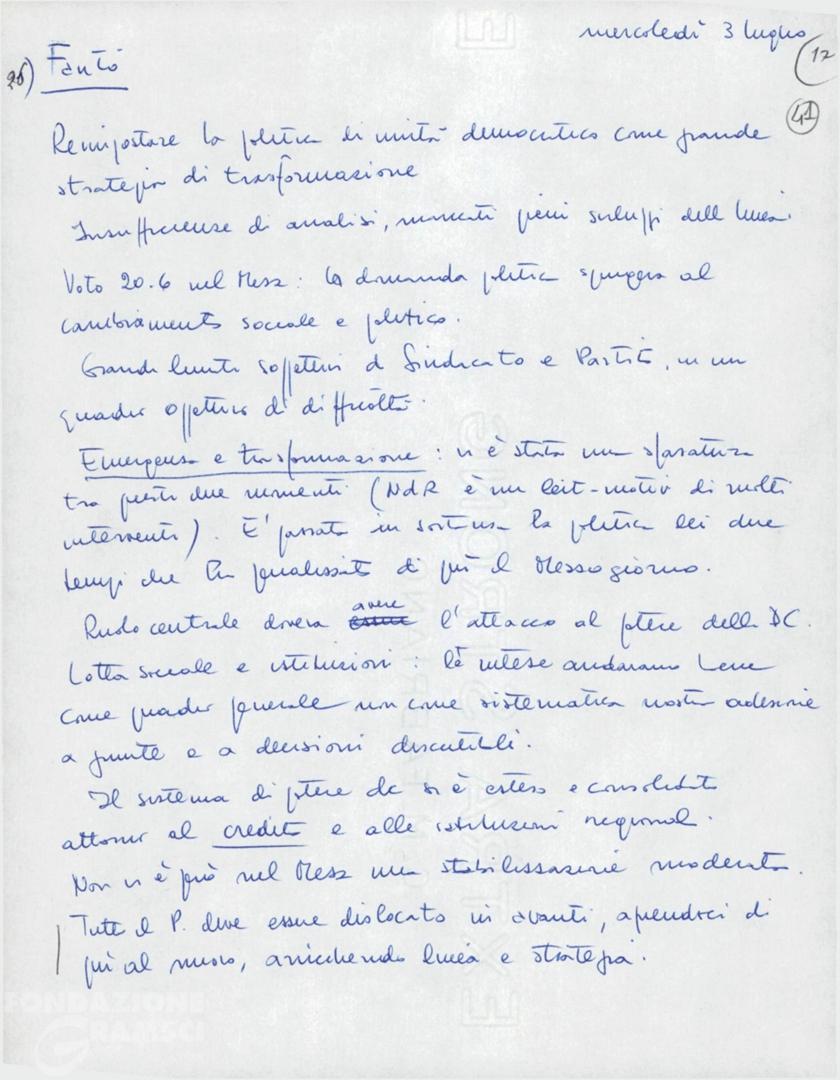 mercoledì 3 luglio
12
26) Fantò
41
Reimpostare la politica di unità democratica come grande
strategia di trasformazione
Insufficienze di analisi, mancati pieni sviluppi della linea.
Voto 20.6 nel Mezz: la domanda politica spingeva al
cambiamento sociale e politico.
Grandi limiti soggettivi di Sindacato e Partito, in un
quadro oggettivo di difficoltà.
Emergenza e trasformazione: vi è stata una sfasatura
tra questi due momenti (NdR è un leit-motiv di molti
interventi). E' passata in sostanza la politica dei due
tempi che ha penalizzato di più il Mezzogiorno.
Ruolo centrale doveva avere l'attacco al potere della DC.
Lotta sociale e istituzioni: le intese andavano bene
come quadro generale non come sistematica nostra adesione
a giunte e a decisioni discutibili.
Il sistema di potere dc si è esteso e consolidato
attorno al credito e alle istituzioni regionali.
Non vi è però nel Mezz una stabilizzazione moderata.
Tutto il P. deve essere dislocato in avanti, aprendoci di
più al nuovo, arricchendo linea e strategia.
FONDAZIONE
GRAMSCI